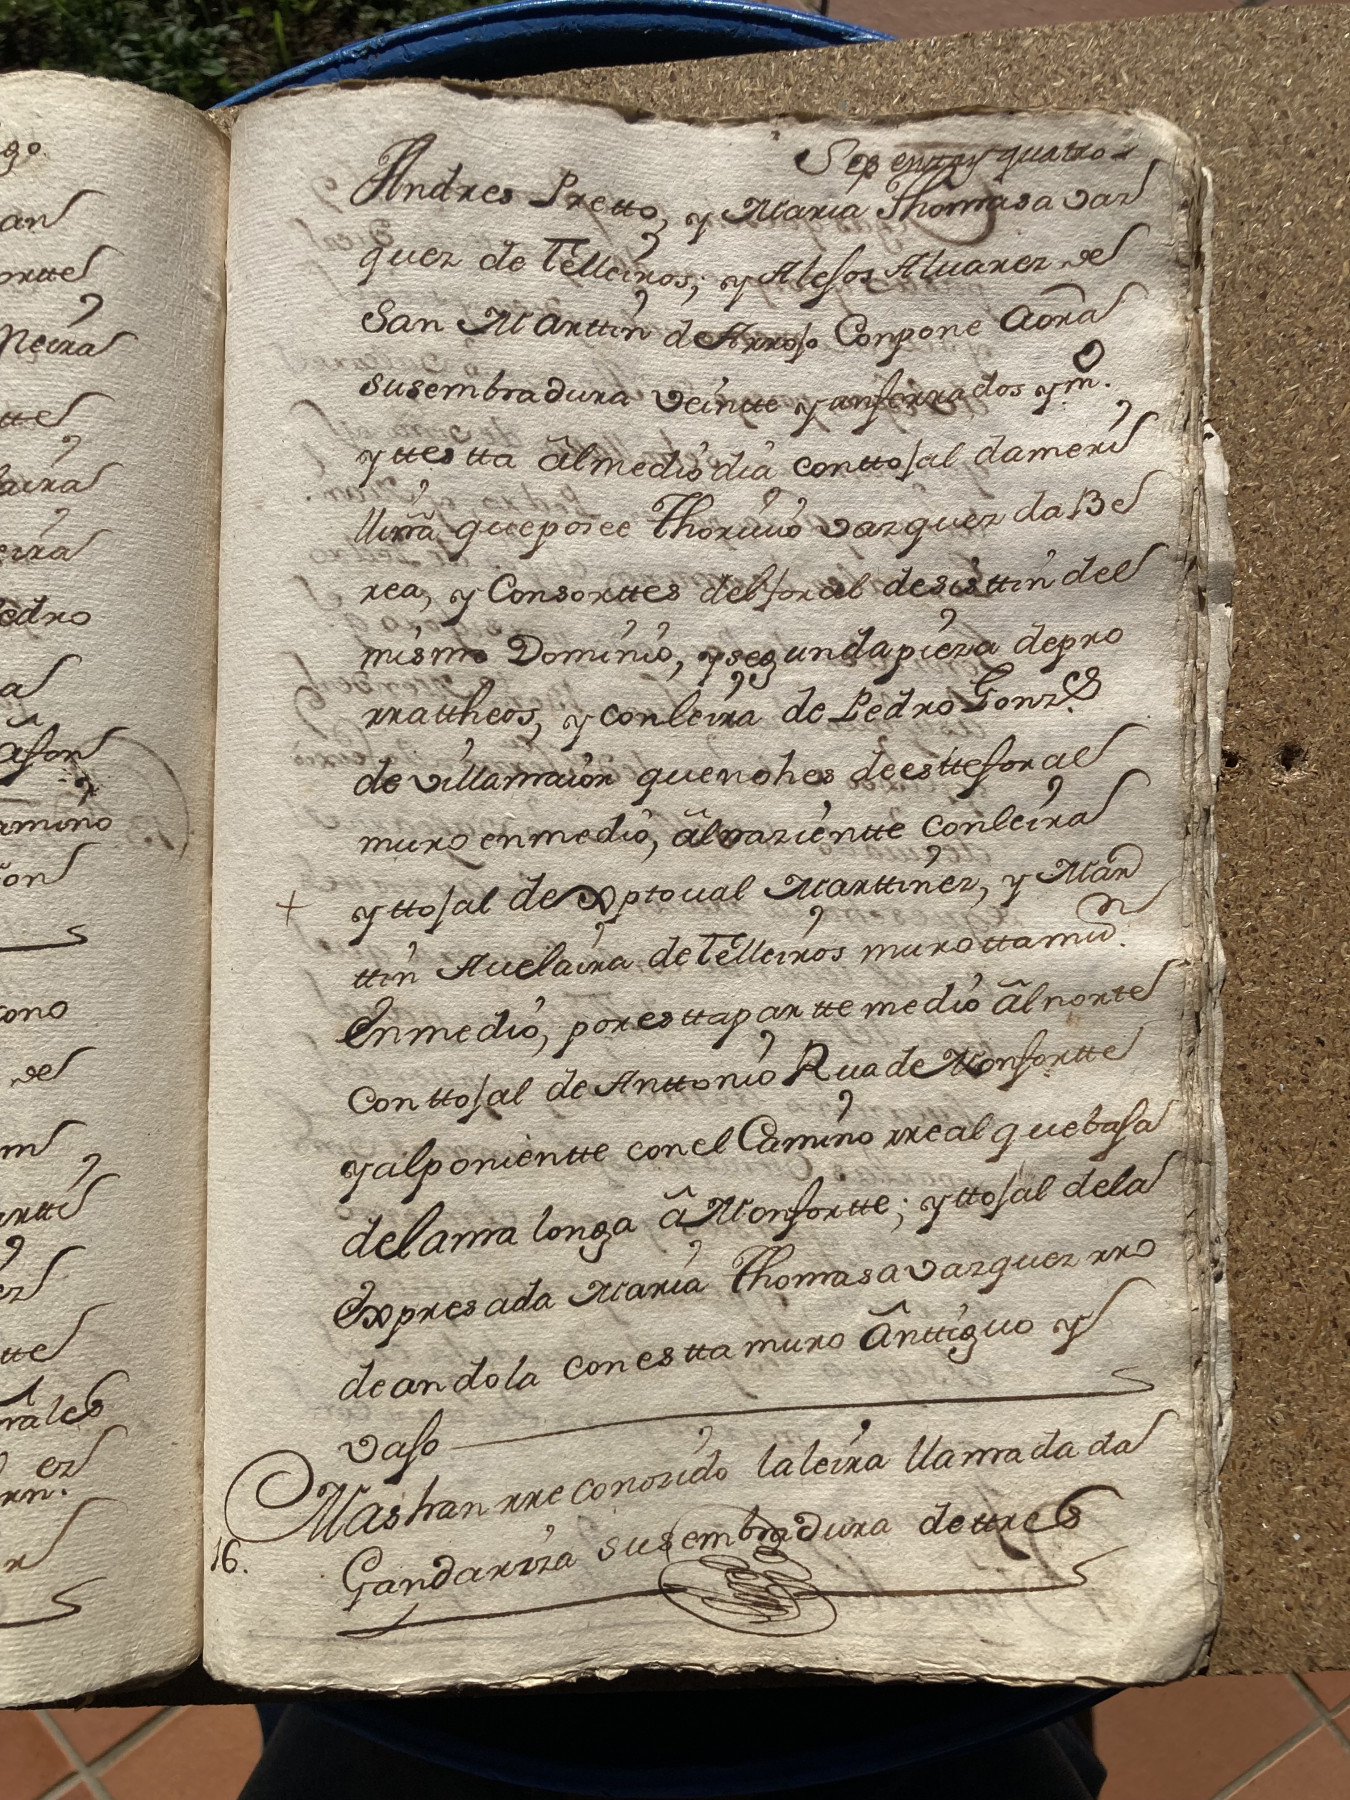 Sesentay quatro
Andres Pretto, y Maria Thomasa Vaz
quez de Telleiros; y Alefos Aluarez de
San Marttin de Arrojo Conpone Aora
susembradura veintte y anferrados ym.º
yttestta âlmedio dia conttosal dameri
lliña queposee Thoriuio vazquez da Be
rea, y Consorttes delforal desisttin del
mismo Dominio, ysegundapieza depro
rrattheos, y conleira de Pedro Gonz.es
de villamaior quenohes deesttefforal
muro enmedio, âlnazientte conleira
+ yttosal de Xptoual Marttinez, y Mar
ttin Auelaira de Telleiros murottamu.n
Enmedio, poresttapartte medio âlnorte
Conttosal de Anttonio Rua de Monfortte
yalponientte conel Camino rreal quebasa
delama longa â Monfortte; yttosal dela
Expresada Maria Thomasa vazquez rro
deandola conestta muro Ânttiguo y
vaso
Mas han rreconozido laleira llamada da
16. Gandariza susembradura dettres
an
ortte
Neira
tte
laira
eira
edro
a
amino
on
cono
de
ez
tte